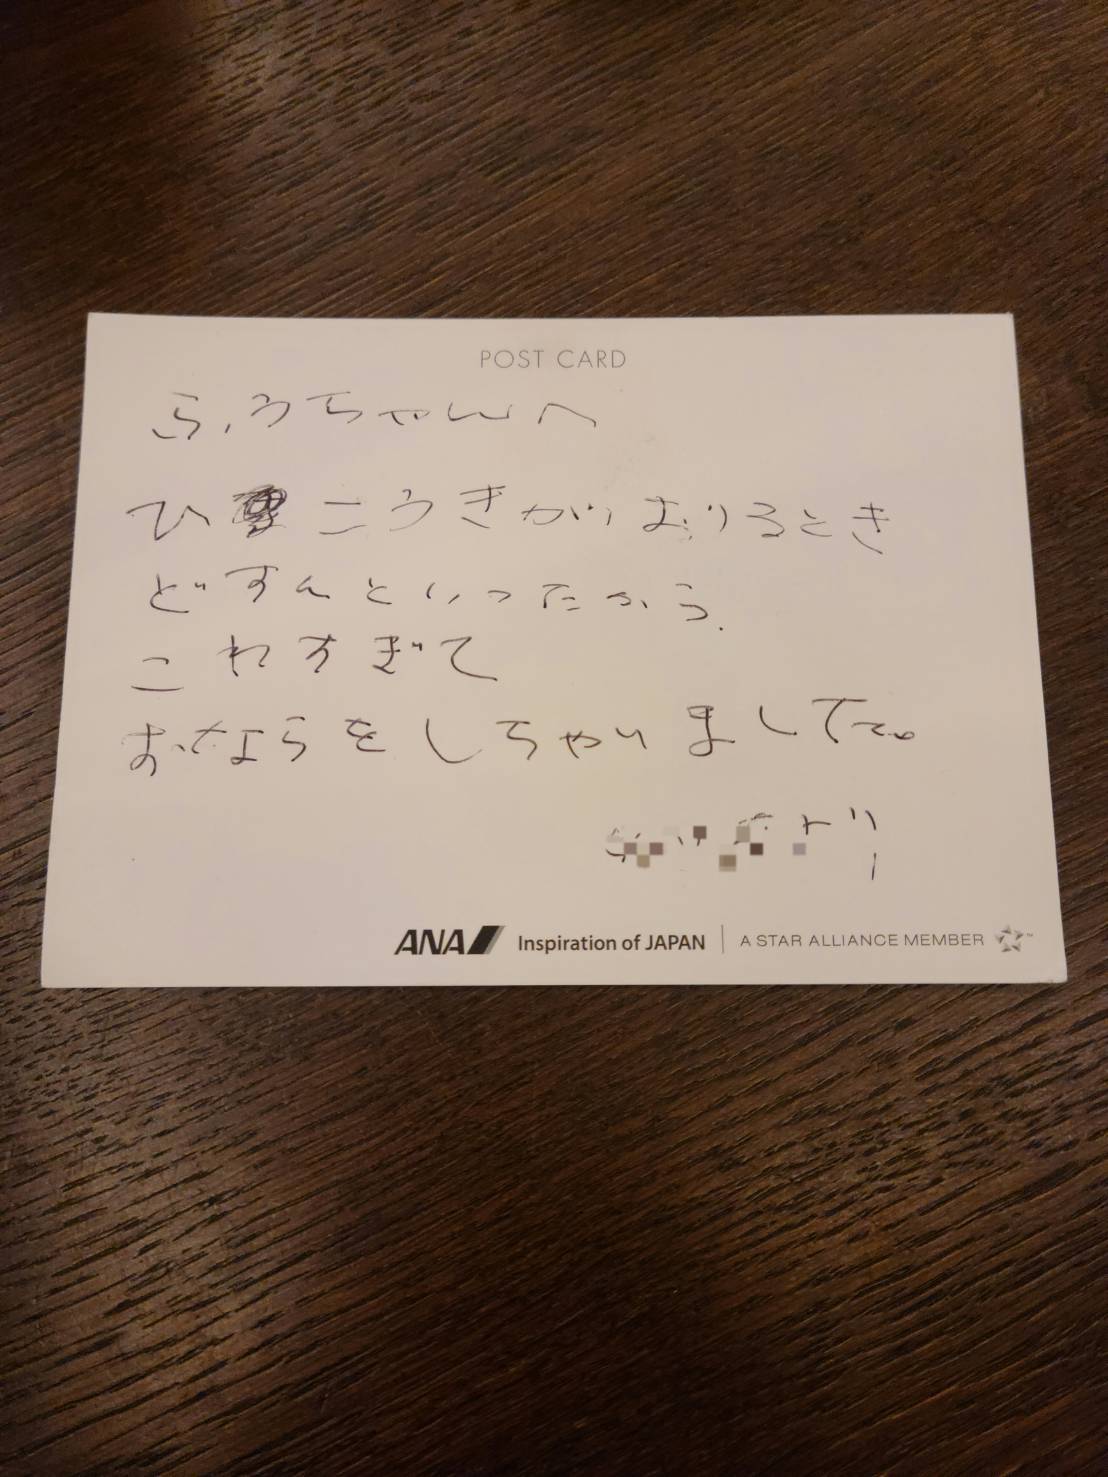 POST CARD
ふうちゃんへ
ひこうきがおりるとき
どすんといったから、
こわすぎて
おならをしちゃいました。
より
ANA Inspiration of JAPAN | A STAR ALLIANCE MEMBER